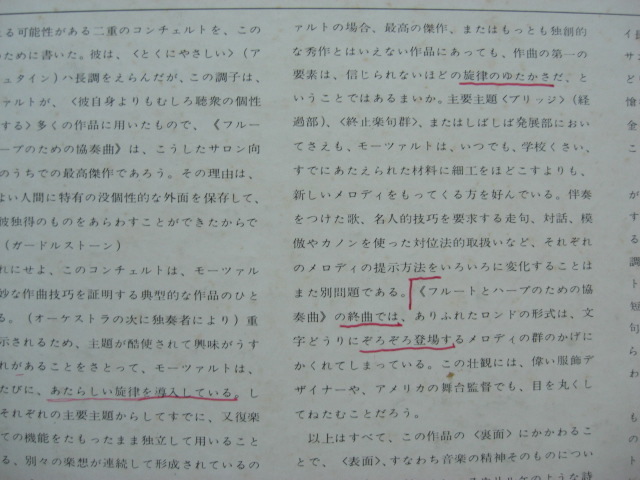 る可能性がある二重のコンチェルトを、この
ために書いた。彼は、〈とくにやさしい〉（ア
ュタイン）ハ長調をえらんだが、この調子は、
ァルトが、〈彼自身よりもむしろ聴衆の個性
する〉多くの作品に用いたもので、《フルー
ープのための協奏曲》は、こうしたサロン向
のうちでの最高傑作であろう。その理由は、
よい人間に特有の没個性的な外面を保存して、
彼独得のものをあらわすことができたからで
（ガードルストーン）
れにせよ、このコンチェルトは、モーツァル
妙な作曲技巧を証明する典型的な作品のひと
る。（オーケストラの次に独奏者により）重
示されるため、主題が酷使されて興味がうす
れがあることをさとって、モーツァルトは、
たびに、あたらしい旋律を導入している。し
それぞれの主要主題からしてすでに、又復楽
ての機能をたもったまま独立して用いること
る、別々の楽想が連続して形成されているの
ァルトの場合、最高の傑作、またはもっとも独創的
な秀作とはいえない作品にあっても、作曲の第一の
要素は、信じられないほどの旋律のゆたかさだ、と
いうことではあるまいか。主要主題〈ブリッジ〉（経
過部）、〈終止楽句群〉、またはしばしば発展部におい
てさえも、モーツァルトは、いつでも、学校くさい、
すでにあたえられた材料に細工をほどこすよりも、
新しいメロディをもってくる方を好んでいる。伴奏
をつけた歌、名人的技巧を要求する走句、対話、模
倣やカノンを使った対位法的取扱いなど、それぞれ
のメロディの提示方法をいろいろに変化することは
また別問題である。《フルートとハープのための協
奏曲》の終曲では、ありふれたロンドの形式は、文
字どうりにぞろぞろ登場するメロディの群のかげに
かくれてしまっている。この壮観には、偉い服飾デ
ザイナーや、アメリカの舞台監督でも、目を丸くし
てねたむことだろう。
以上はすべて、この作品の〈裏面〉にかかわるこ
とで、〈表面〉、すなわち音楽の精神そのものについ